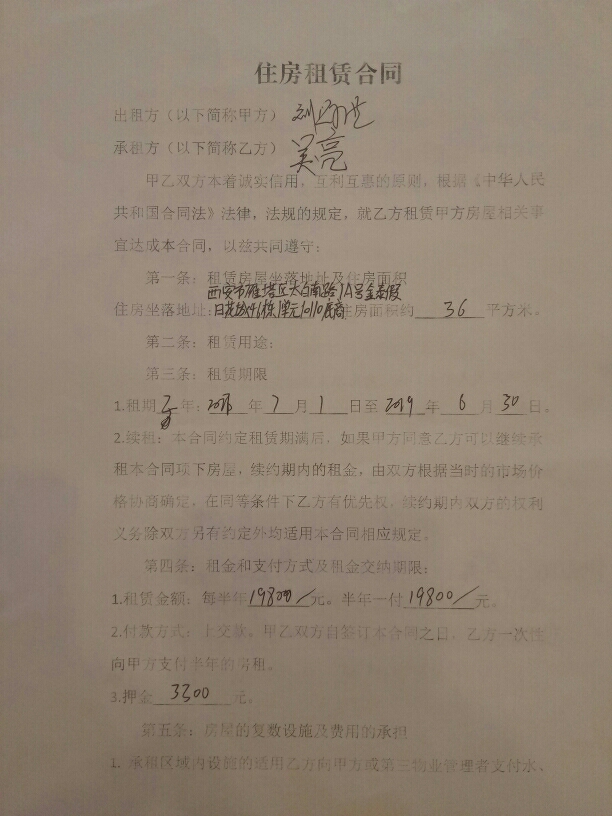 住房租赁合同
出租方（以下简称甲方）
承租方（以下简称乙方）吴亮
甲乙双方本着诚实信用，互利互惠的原则，根据《中华人民
共和国合同法》法律，法规的规定，就乙方租赁甲方房屋相关事
宜达成本合同，以兹共同遵守：
第一条：租赁房屋坐落地址及住房面积
西安市雁塔区大白南路1A号金泰假
住房坐落地址：日花城1栋1单元10110底商住房面积约36平方米。
第二条：租赁用途：
第三条：租赁期限
1.租期 年：年7月1日至2019年6月30日。
2.续租：本合同约定租赁期满后，如果甲方同意乙方可以继续承
租本合同项下房屋，续约期内的租金，由双方根据当时的市场价
格协商确定，在同等条件下乙方有优先权，续约期内双方的权利
义务除双方另有约定外均适用本合同相应规定。
第四条：租金和支付方式及租金交纳期限：
1.租赁金额：每半年19800/元。半年一付19800/元。
2.付款方式：上交款，甲乙双方自签订本合同之日，乙方一次性
向甲方支付半年的房租。
3.押金3300元。
第五条：房屋的复数设施及费用的承担
1. 承租区域内设施的适用乙方向甲方或第三物业管理者支付水、